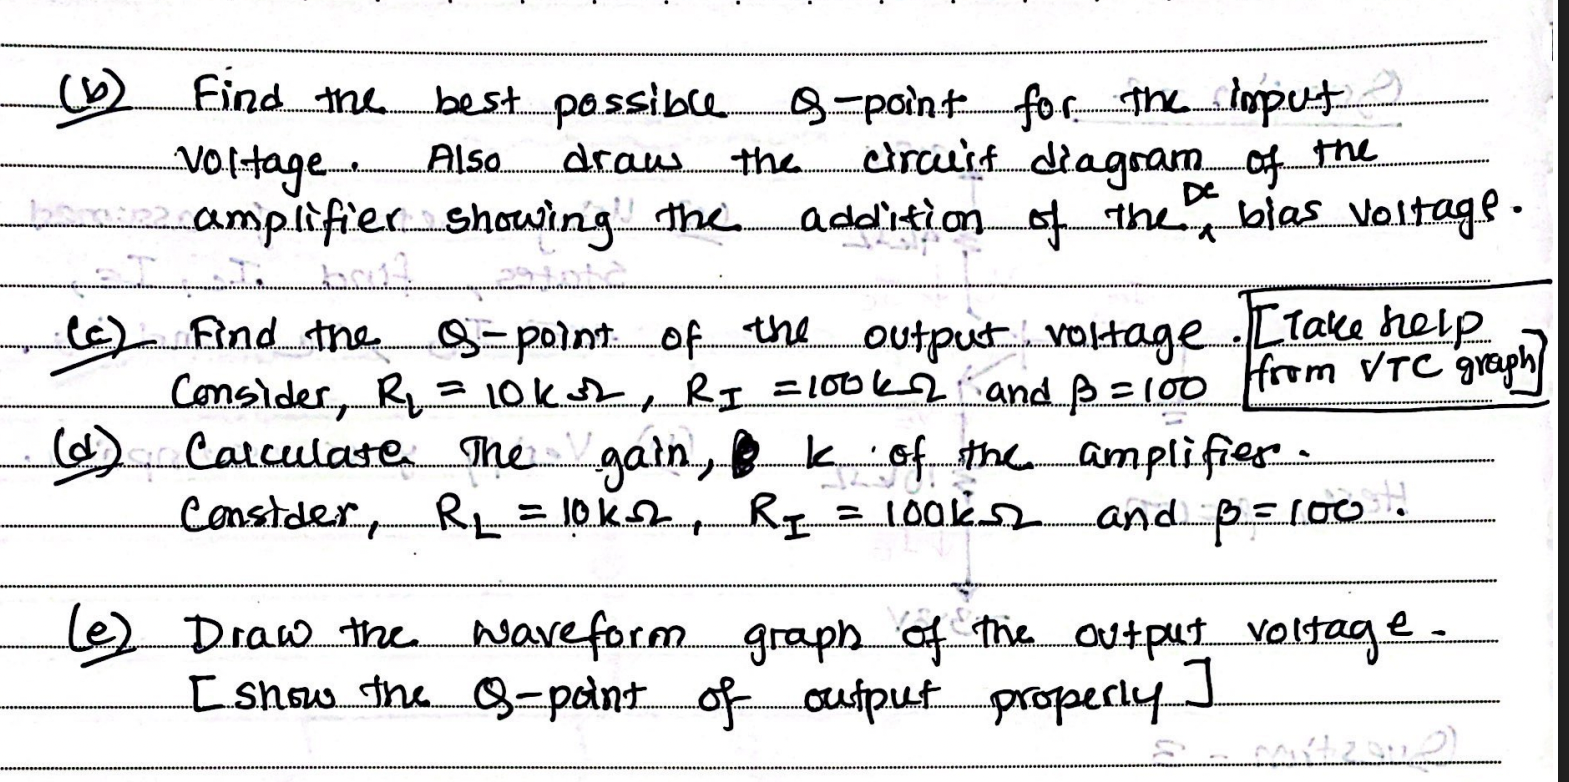 (b) Find the best possible Q-point for the input
voltage. Also draw the circuit diagram of the
amplifier showing the addition of the DC bias voltage.
(c) Find the Q-point of the output voltage. [Take help
from VTC graph]
Consider, R_L = 10kΩ, R_I = 100kΩ and β = 100
(d) Calculate the gain, k of the amplifier.
Consider, R_L = 10kΩ, R_I = 100kΩ and β = 100.
(e) Draw the waveform graph of the output voltage.
[show the Q-point of output properly]